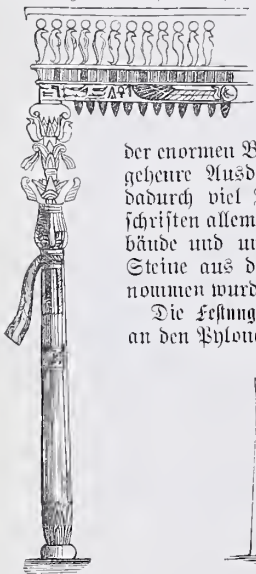 der enormen B
geheure Ausd
dadurch viel
schriften allem
bände und un
Steine aus d
nommen wurd
Die Festung
an den Pylone